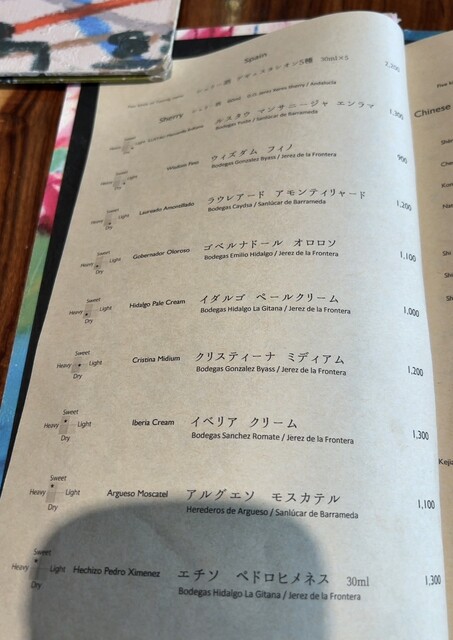 Spain
シェリー酒 テイスティング5種 30ml×5 2,200
Sherry
ルスタウ マンサニージャ エンラマ 1,300
Sweet
Light
Dry
Wisdom Fino ウィズダム フィノ 900
Bodegas Gonzalez Byass / Jerez de la Frontera
Sweet
Heavy Light Laureado Amontillado ラウレアード アモンティリャード 1,200
Dry Bodegas Caydsa / Sanlúcar de Barrameda
Sweet
Heavy Light Gobernador Oloroso ゴベルナドール オロロソ 1,100
Dry Bodegas Emilio Hidalgo / Jerez de la Frontera
Sweet
Heavy Light Hidalgo Pale Cream イダルゴ ペールクリーム 1,000
Dry Bodegas Hidalgo La Gitana / Jerez de la Frontera
Sweet
Heavy Light Cristina Midium クリスティーナ ミディアム 1,200
Dry Bodegas Gonzalez Byass / Jerez de la Frontera
Sweet
Heavy Light Iberia Cream イベリア クリーム 1,300
Dry Bodegas Sanchez Romate / Jerez de la Frontera
Sweet
Heavy Light Argueso Moscatel アルグエソ モスカテル 1,100
Dry Herederos de Argueso / Sanlúcar de Barrameda
Sweet
Heavy Light Hechizo Pedro Ximenez エチソ ペドロヒメネス 30ml 1,300
Dry Bodegas Hidalgo La Gitana / Jerez de la Frontera
Chinese